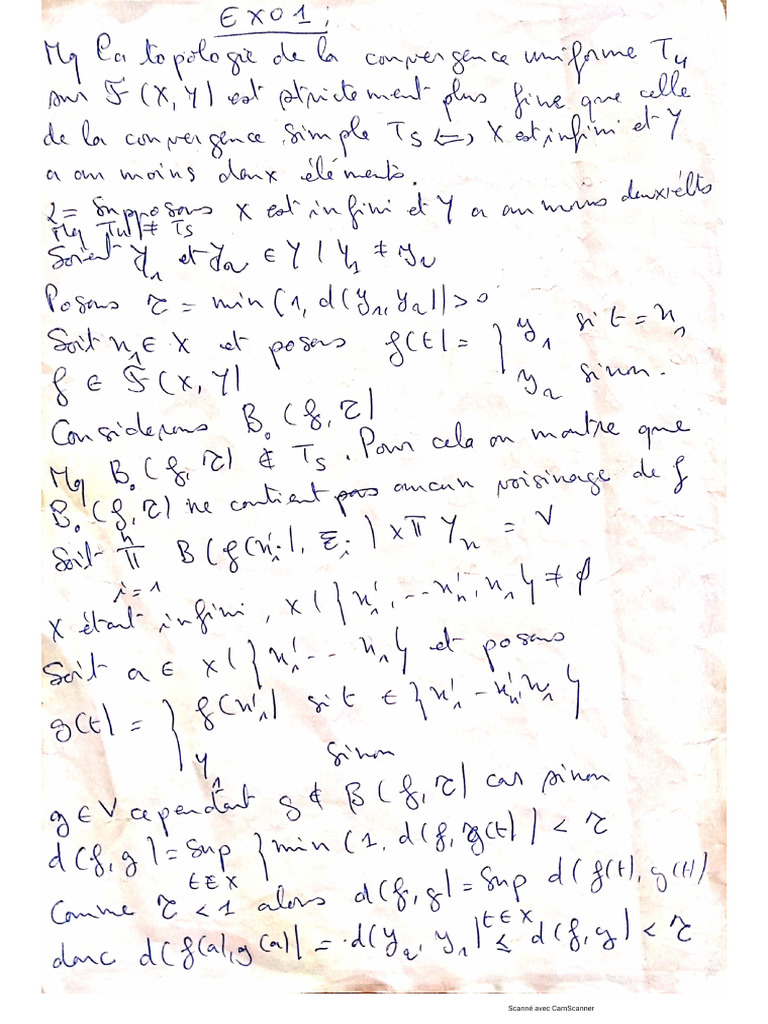 EXO1:
Mq la topologie de la convergence uniforme Tu
sur F(X,Y) est strictement plus fine que celle
de la convergence simple Ts <=> X est infini et Y
a au moins deux éléments.
Supposons X est infini et Y a au moins deux élts
Mq Tu ≠ Ts
Soient y1 et y2 ∈ Y / y1 ≠ y2
Posons r = min(1, d(y1, y2)) > 0
Soit x1 ∈ X et posons f(t) = { y1 si t = x1
y2 sinon.
f ∈ F(X,Y)
Considerons B0(f, r)
Mq B0(f, r) ∉ Ts. Pour cela on montre que
B0(f, r) ne contient aucun voisinage de f
Soit n∏i=1 B(f(x'i), Ei) x ∏ Yx = V
X étant infini, X\{x'1, ... x'n, x1} ≠ ∅
Soit a ∈ X\{x'1 ... x1} et posons
g(t) = { f(x'1) si t ∈ {x'1 - x'n, x1}
y1 sinon
g ∈ V cependant g ∉ B(f, r) car sinon
d(f, g) = Sup t∈X {min(1, d(f, g(t)) < r
Comme r < 1 alors d(f, g) = Sup t∈X d(f(t), g(t))
donc d(f(a), g(a)) = d(y2, y1) ≤ d(f, g) < r
Scanné avec CamScanner